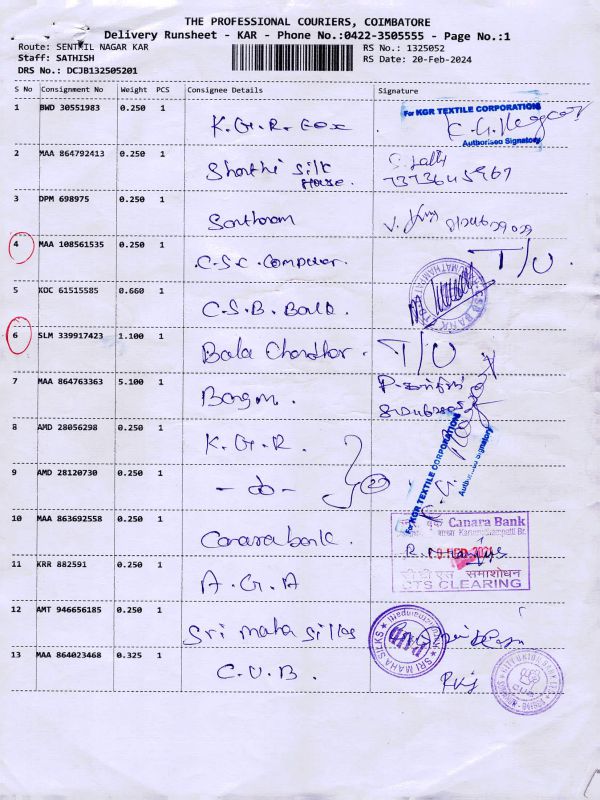 THE PROFESSIONAL COURIERS, COIMBATORE
Delivery Runsheet - KAR - Phone No.:0422-3505555 - Page No.:1
Route: SENTHIL NAGAR KAR RS No.: 1325052
Staff: SATHISH RS Date: 20-Feb-2024
DRS No.: DCJB132505201
S No Consignment No Weight PCS Consignee Details Signature
1 BWD 30551983 0.250 1 K.G.R. Gex For KGR TEXTILE CORPORATION
Authorised Signatory
2 MAA 864792413 0.250 1 Shanthi Silk
House. 7373645967
3 DPM 698975 0.250 1 Santhosam
4 MAA 108561535 0.250 1 C.S.C. Computer. T/O
5 KOC 61515585 0.660 1 C.S.B. Bank.
6 SLM 339917423 1.100 1 Bala Chandhar. T/O
7 MAA 864763363 5.100 1
8 AMD 28056298 0.250 1 K.G.R.
For KGR TEXTILE CORPORATION
Authorised Signatory
9 AMD 28120730 0.250 1 - do - 2
10 MAA 863692558 0.250 1 Canara bank. Canara Bank
11 KRR 882591 0.250 1 A.G.A
सी टी एस समाशोधन
CTS CLEARING
12 AMT 946656185 0.250 1 Sri maha Silks SRI MAHA SILKS
13 MAA 864023468 0.325 1 C.U.B.